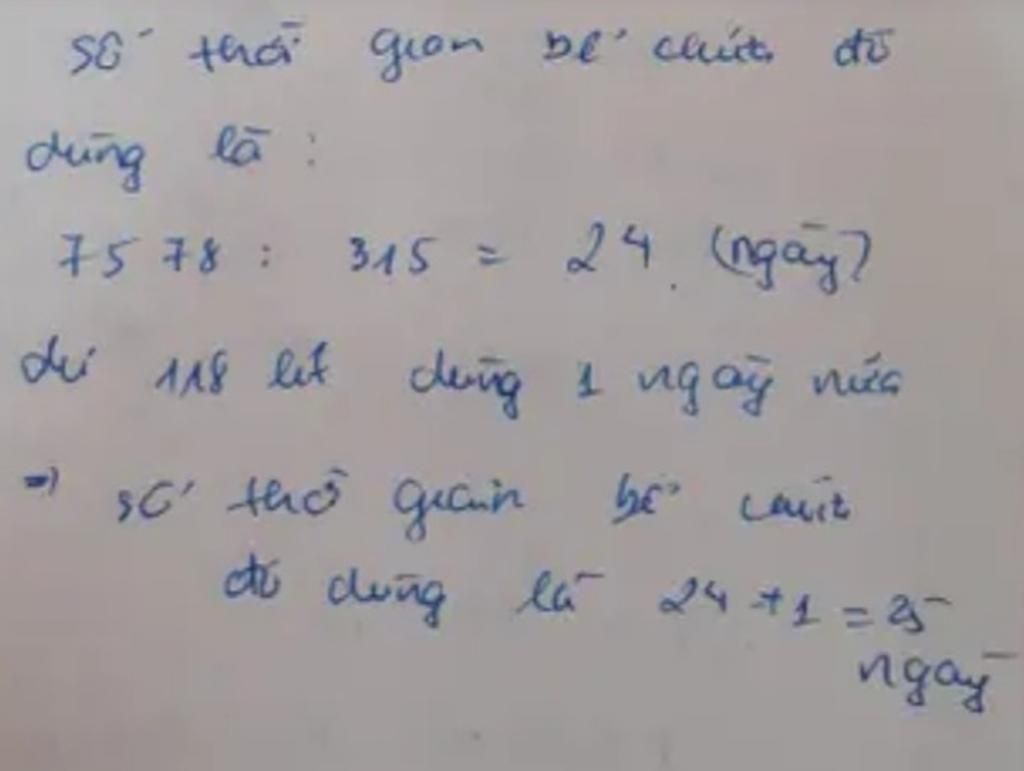 số thời gian bể chứa đủ
dùng là :
7578 : 315 = 24 (ngày)
dư 118 lít dùng 1 ngày nữa
=> số thời gian bể chứa
đủ dùng là 24 + 1 = 25
ngày